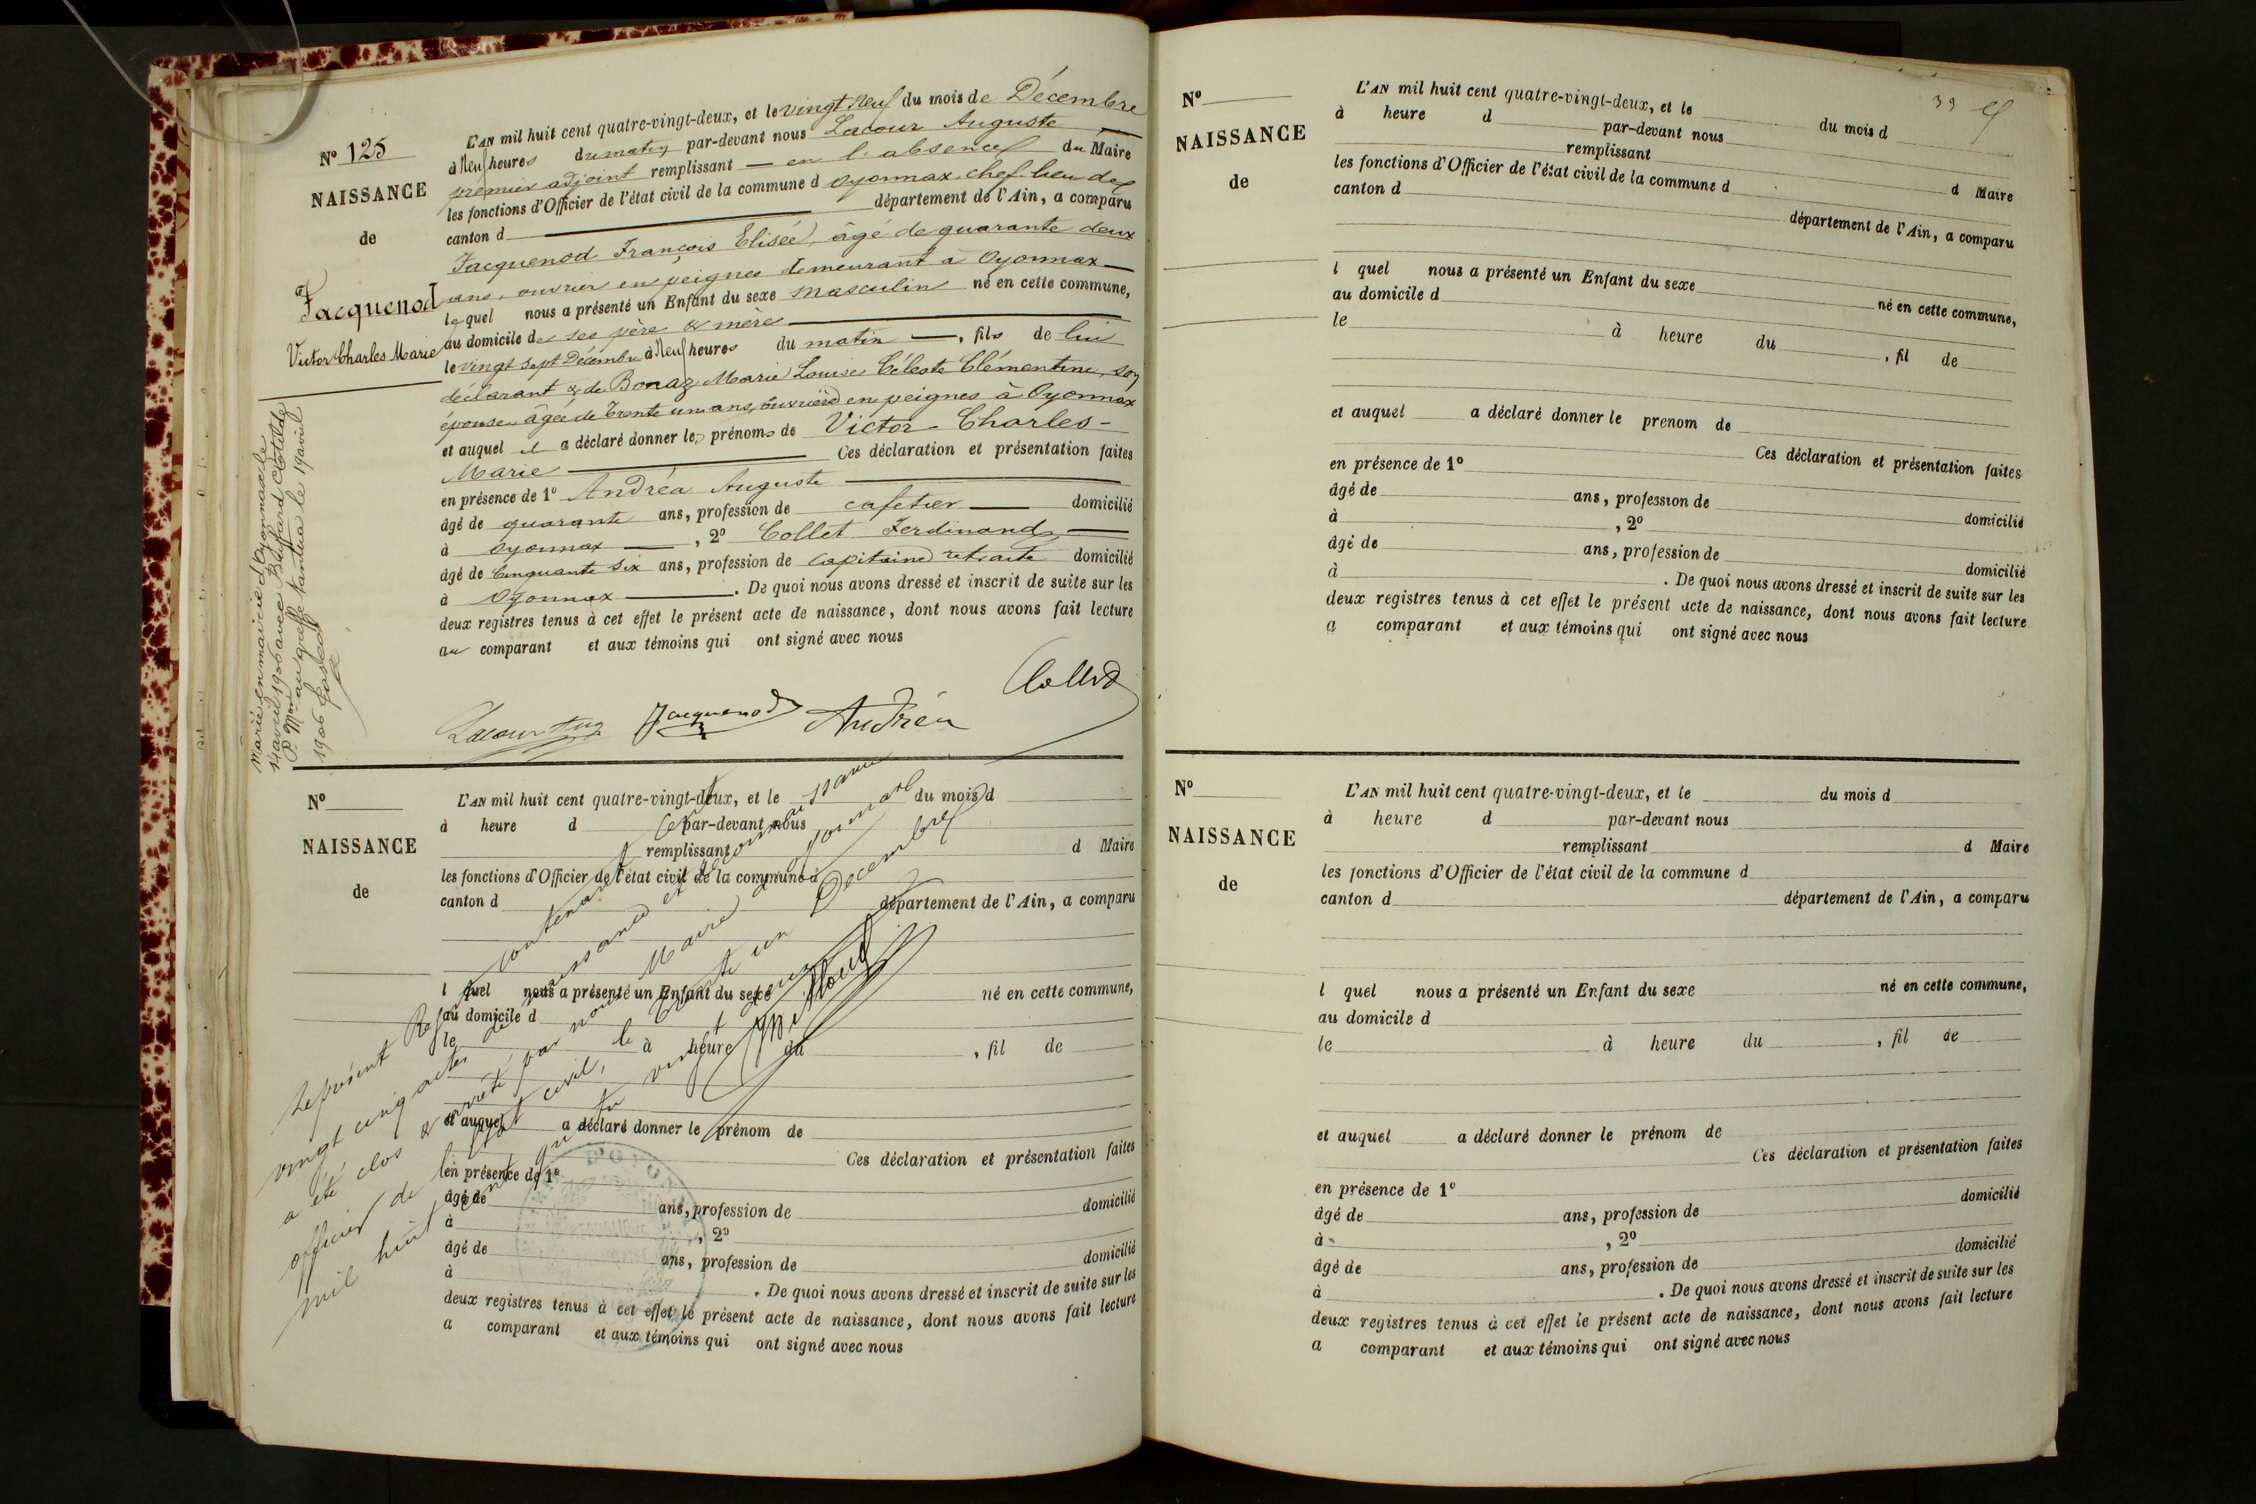 N° 125
NAISSANCE
de
Jacquenod
Victor Charles Marie
Marié en mairie d'Oyonnax le
14 avril 1906 avec Buffard Clotilde
P. Mon au greffe Nantua le 19 avril
1906
L'AN mil huit cent quatre-vingt-deux, et le vingt neuf du mois de Décembre
à Neuf heures du matin par-devant nous Lacour Auguste
premier adjoint remplissant — en l'absence du Maire
les fonctions d'Officier de l'état civil de la commune d Oyonnax chef lieu de
canton d département de l'Ain, a comparu
Jacquenod François Elisée, âgé de quarante deux
ans, ouvrier en peignes demeurant à Oyonnax —
lequel nous a présenté un Enfant du sexe masculin né en cette commune,
au domicile de ses père & mère
le vingt sept Décembre à Neuf heures du matin —, fils de lui
déclarant & de Bonaz Marie Louise Céleste Clémentine, son
épouse, âgée de trente un ans, ouvrière en peignes à Oyonnax
et auquel il a déclaré donner les prénoms de Victor - Charles -
Marie Ces déclaration et présentation faites
en présence de 1° Andréa Auguste
âgé de quarante ans, profession de cafetier — domicilié
à Oyonnax —, 2° Collet Ferdinand —
âgé de Cinquante Six ans, profession de Capitaine retraité domicilié
à Oyonnax —. De quoi nous avons dressé et inscrit de suite sur les
deux registres tenus à cet effet le présent acte de naissance, dont nous avons fait lecture
au comparant et aux témoins qui ont signé avec nous
Collet
Lacour Aug Jacquenod Andréa
N°
NAISSANCE
de
L'AN mil huit cent quatre-vingt-deux, et le du mois d
à heure d par-devant nous
remplissant d Maire
les fonctions d'Officier de l'état civil de la commune d
canton d département de l'Ain, a comparu
l quel nous a présenté un Enfant du sexe né en cette commune,
au domicile d
le à heure du , fil de
et auquel a déclaré donner le prénom de
Ces déclaration et présentation faites
en présence de 1°
âgé de ans, profession de domicilié
à , 2°
âgé de ans, profession de domicilié
à . De quoi nous avons dressé et inscrit de suite sur les
deux registres tenus à cet effet le présent acte de naissance, dont nous avons fait lecture
a comparant et aux témoins qui ont signé avec nous
Le présent Registre contenant cent
vingt cinq actes de naissance et reconnaissance
a été clos & arrêté par nous Maire d'Oyonnax
officier de l'Etat civil, le trente un Décembre
mil huit cent quatre vingt deux
39
N°
NAISSANCE
de
L'AN mil huit cent quatre-vingt-deux, et le du mois d
à heure d par-devant nous
remplissant d Maire
les fonctions d'Officier de l'état civil de la commune d
canton d département de l'Ain, a comparu
l quel nous a présenté un Enfant du sexe né en cette commune,
au domicile d
le à heure du , fil de
et auquel a déclaré donner le prenom de
Ces déclaration et présentation faites
en présence de 1°
âgé de ans, profession de domicilié
à , 2°
âgé de ans, profession de domicilié
à . De quoi nous avons dressé et inscrit de suite sur les
deux registres tenus à cet effet le présent acte de naissance, dont nous avons fait lecture
a comparant et aux témoins qui ont signé avec nous
N°
NAISSANCE
de
L'AN mil huit cent quatre-vingt-deux, et le du mois d
à heure d par-devant nous
remplissant d Maire
les fonctions d'Officier de l'état civil de la commune d
canton d département de l'Ain, a comparu
l quel nous a présenté un Enfant du sexe né en cette commune,
au domicile d
le à heure du , fil de
et auquel a déclaré donner le prénom de
Ces déclaration et présentation faites
en présence de 1°
âgé de ans, profession de domicilié
à , 2°
âgé de ans, profession de domicilié
à . De quoi nous avons dressé et inscrit de suite sur les
deux registres tenus à cet effet le présent acte de naissance, dont nous avons fait lecture
a comparant et aux témoins qui ont signé avec nous